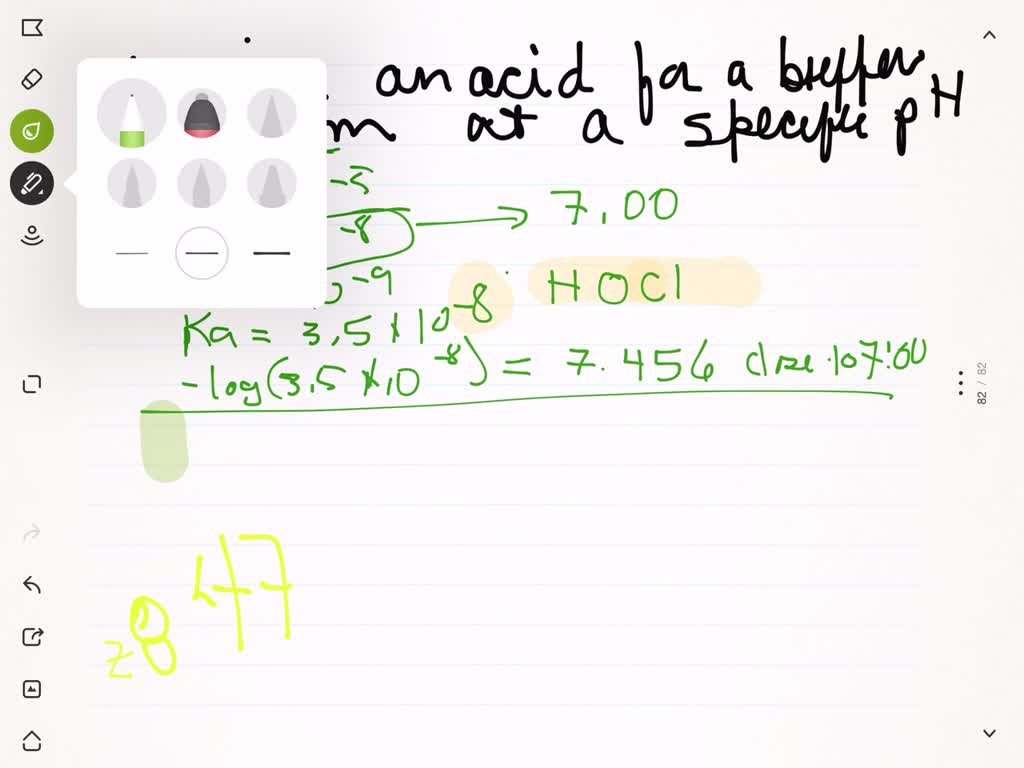 an acid for a buffer
m at a specific pH
-5
-8 → 7.00
-9 HOCl
Ka = 3.5 x 10^-8
-log(3.5 x 10^-8) = 7.456 close to 7.00
82 / 82
47
z8